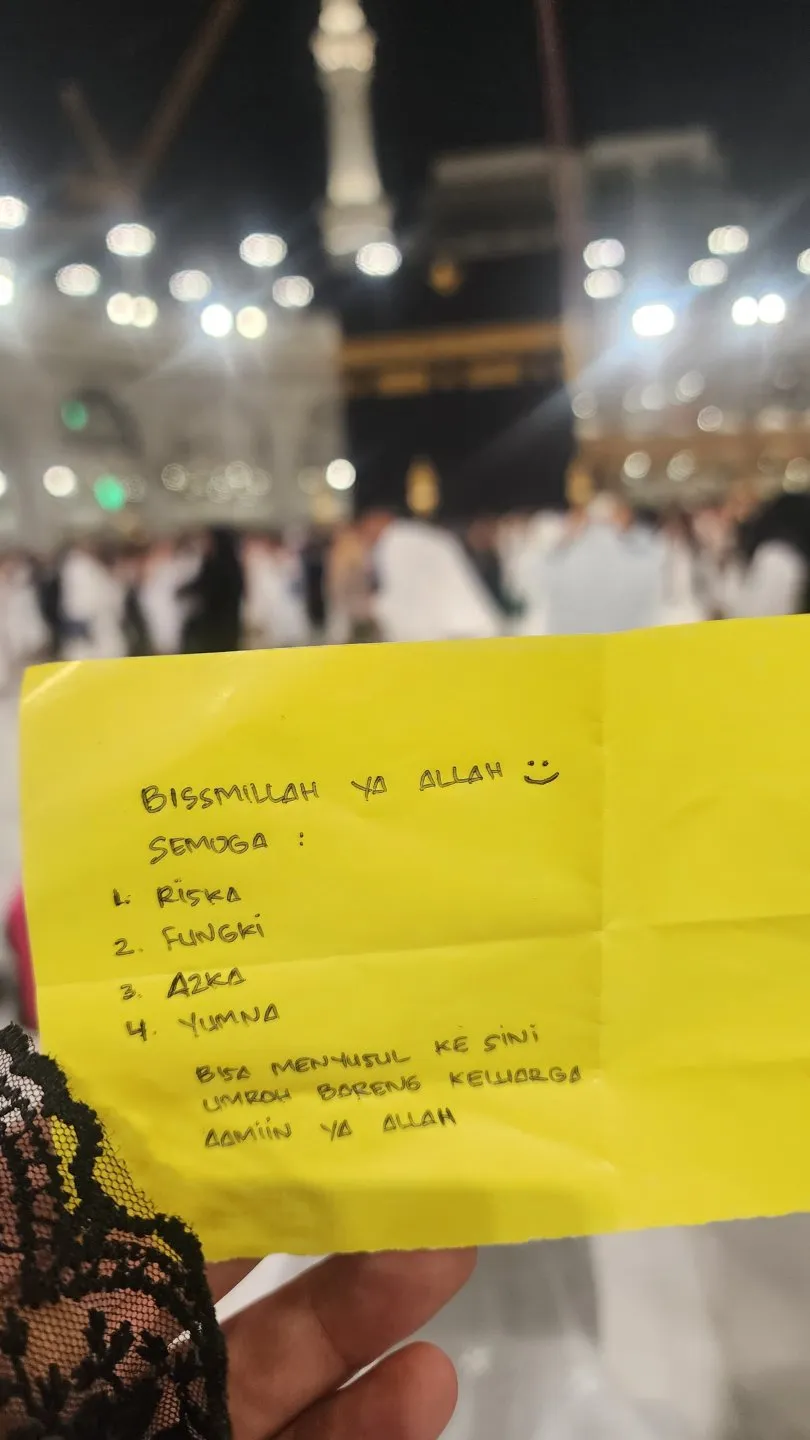 BISSMILLAH YA ALLAH
SEMOGA :
1. RISKA
2. FUNGKI
3. AZKA
4. YUMNA
BISA MENYUSUL KE SINI
UMROH BARENG KELUARGA
AAMIIN YA ALLAH